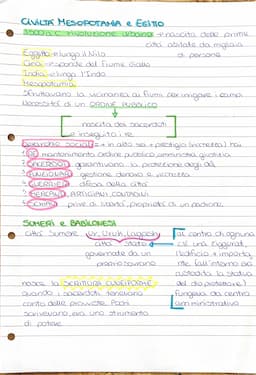 CIVILTÀ MESOPOTAMIA e EGITTO
RIVOLUZIONE URBANA → nascita delle prime
città abitate da migliaia
di persone
Egitto → lungo il Nilo
Cina → sponde del Fiume Giallo
India → lungo l'Indo
Mesopotamia
Sfruttavano la vicinanza ai fiumi per irrigare i campi
Necessità di un ORDINE PUBBLICO
nascita dei sacerdoti
e in seguito i re
+ in alto sei + prestigio (ricchezza) hai
mantenimento ordine pubblico amministra giustizia
SACERDOTI garantivano la protezione degli dei
FUNZIONARI gestione denaro e ricchezza
GUERRIERI difesa della città
MERCANTI, ARTIGIANI, CONTADINI
SCHIAVI prive di libertà, proprietà di un padrone
SUMERI e BABILONESI
Città Sumere Ur, Uruk, Lagash
città stato
governate da un
proprio sovrano
al centro di ognuna
c'è una ziggurat,
(edificio + importante
all'interno era
custodita la statua
del dio protettore)
fungeva da centro
amministrativo
nasce la SCRITTURA CUNEIFORME
quando i sacerdoti tenevano
conto delle provviste. Pochi
scrivevano, era uno strumento
di potere